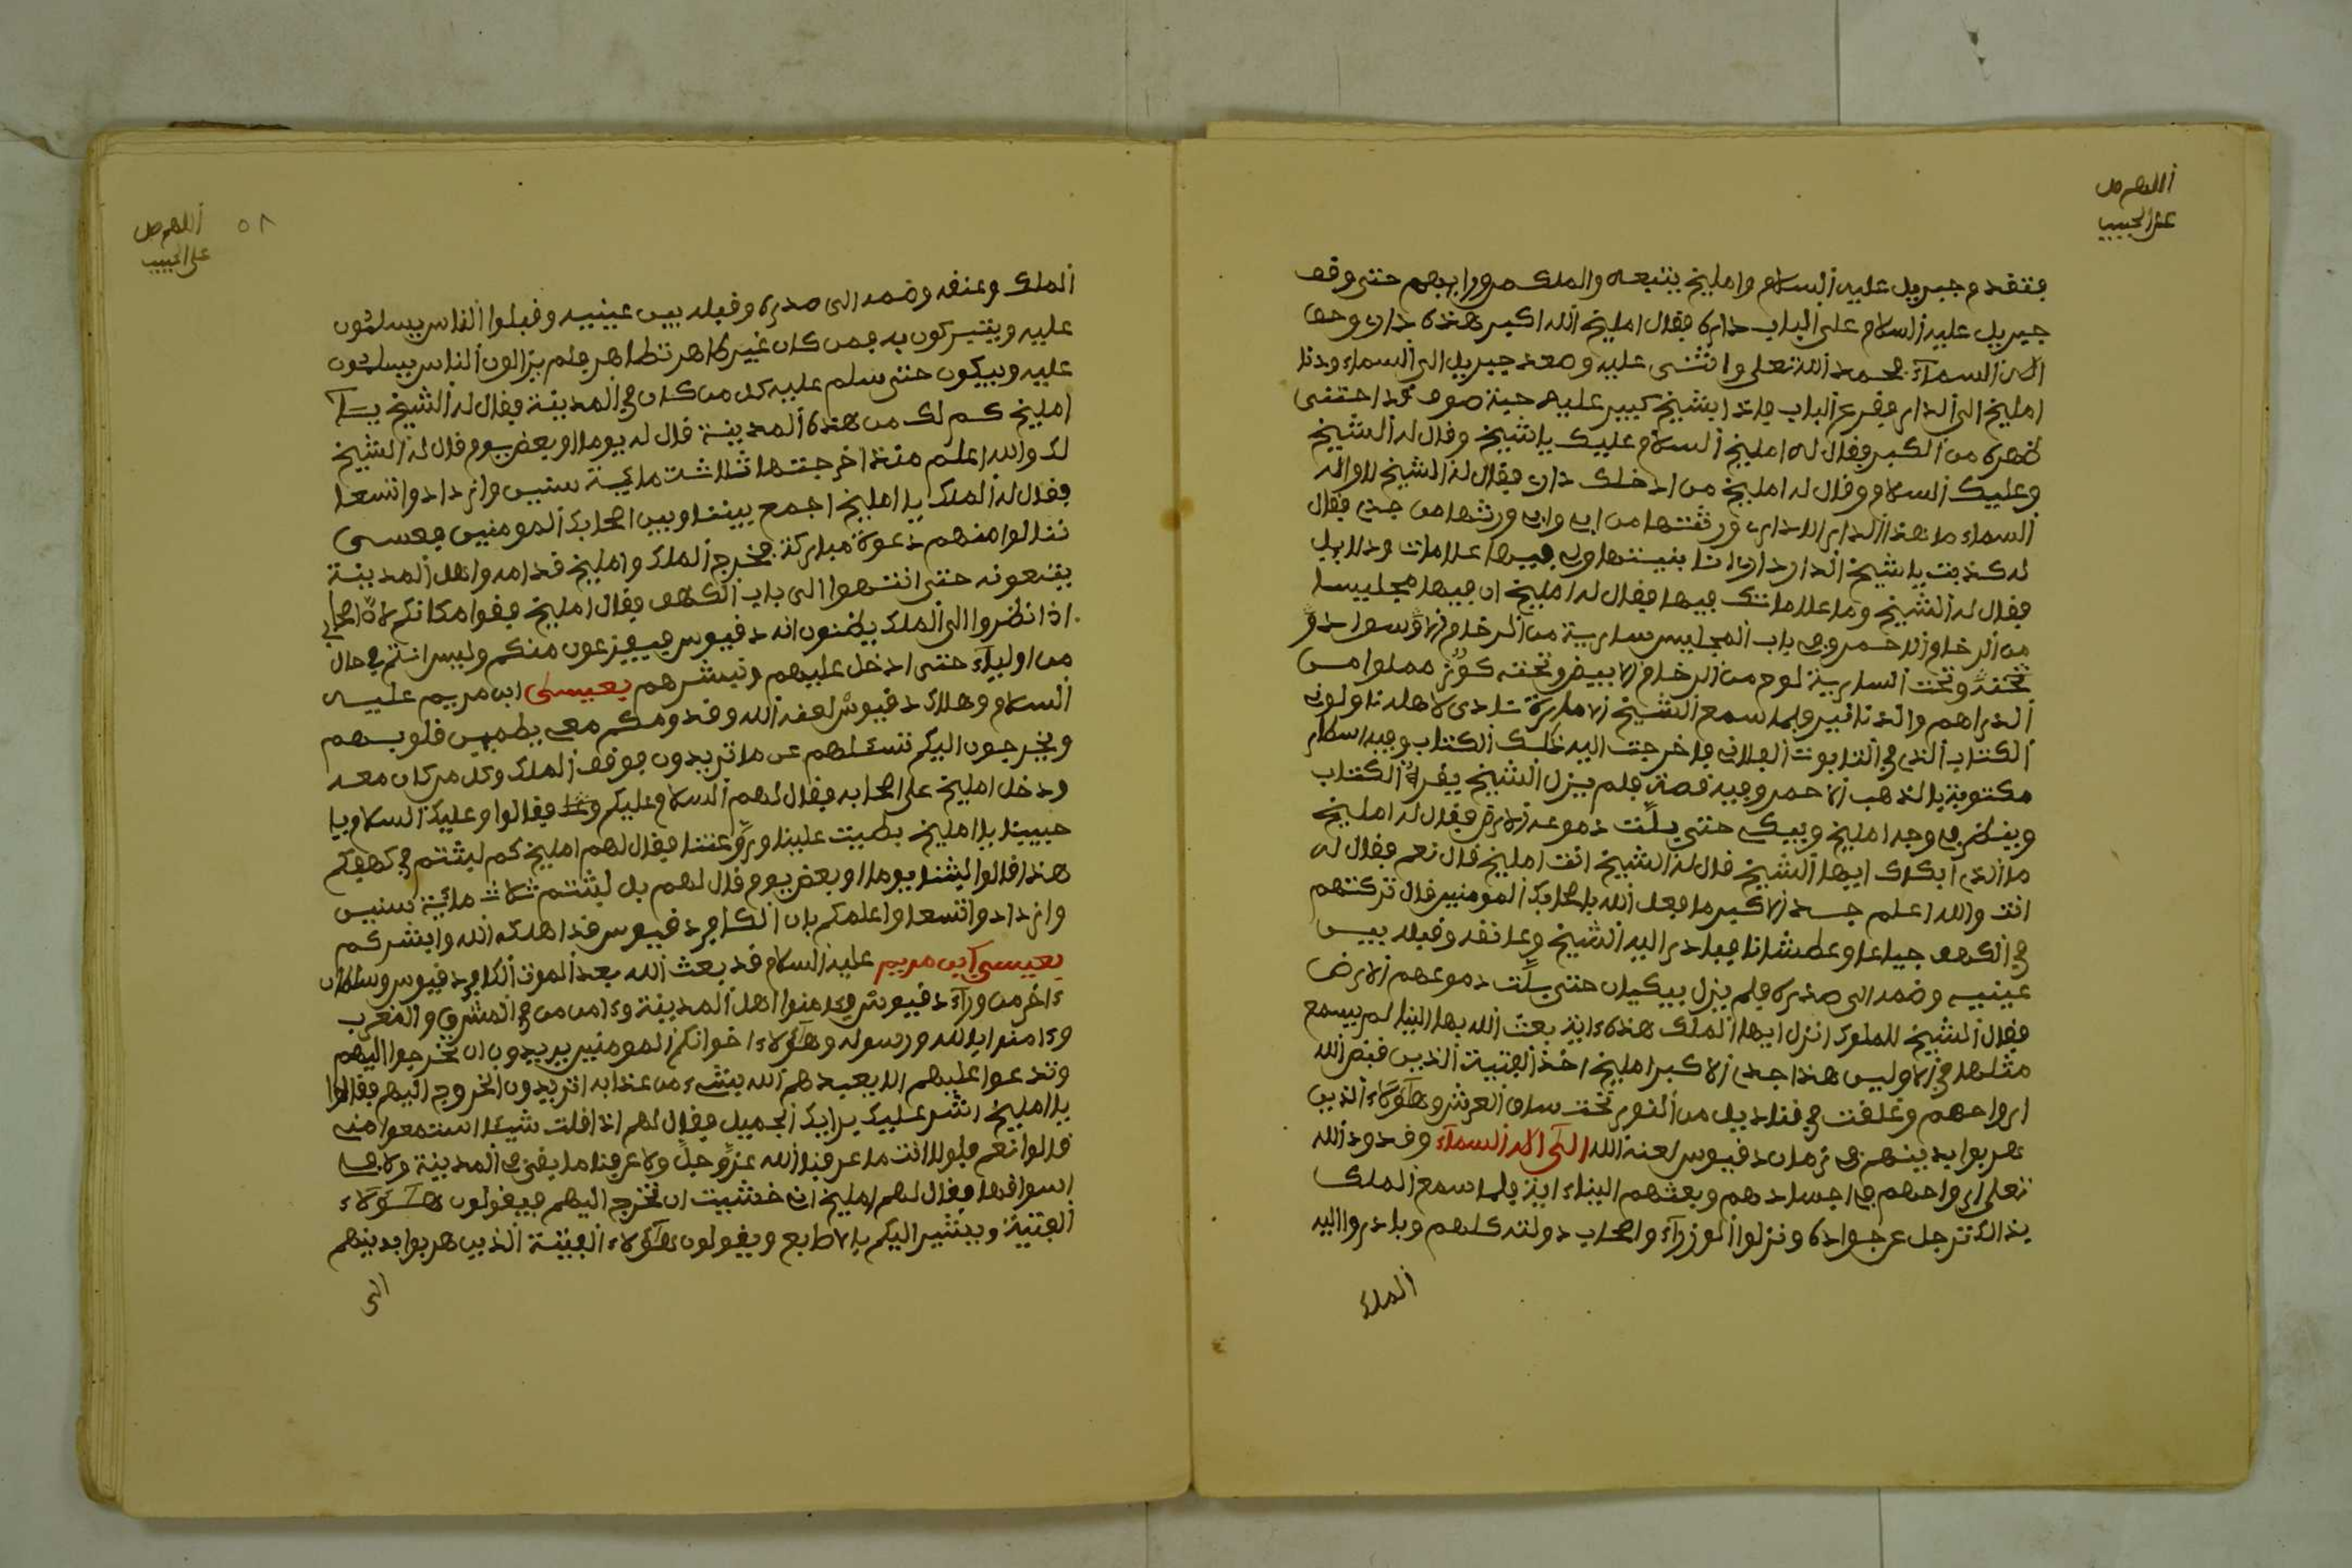 اللهم صل
على الحبيب
فتقدم جبريل عليه السلام وامليخ يتبعه والملك من ورايهم حتى وقف
جبريل عليه السلام على الباب داره فقال امليخ الله اكبر هذه داري وحق
اله السماء فحمد الله تعلى واثنى عليه وصعد جبريل الى السماء ودنا
امليخ الى الدار فقرع الباب فاذا بشيخ كبير عليه جبة صوف قد احتنى
ظهره من الكبر فقال له امليخ السلام عليك يا شيخ وقال له الشيخ
وعليك السلام وقال له امليخ من ادخلك داري فقال له الشيخ لا واله
السماء ما هذا الدار الا داري ورثتها من ابي وابي ورثها من جدي فقال
له كذبت يا شيخ الدار داري انا بنيتها ولي فيها علامات ودلايل
فقال له الشيخ وما علاماتك فيها فقال له امليخ ان فيها مجليسا
من الرخام الاحمر وفي باب المجليس سارية من الرخام الاسود
تحته وتحت السارية لوح من الرخام الابيض وتحته كوز مملوا من
الدراهم والدنانير فلما سمع الشيخ الامارة نادى لاهله ناولوني
الكتاب الذي في التابوت الفلاني فاخرجت اليه ذلك الكتاب وفيه اسطار
مكتوبة بالذهب الاحمر وفيه قصة فلم يزل الشيخ يقرا الكتاب
وينظر في وجه امليخ ويبكي حتى بلت دموعه الارض فقال له امليخ
ما الذي ابكاك ايها الشيخ قال له الشيخ انت امليخ قال نعم فقال له
انت والله اعلم جدي الاكبر ما فعل الله باصحابك المومنين قال تركتهم
في الكهف جياعا وعطشانا فبادر اليه الشيخ وعانقه وقبله بين
عينيه وضمه الى صدره فلم يزل يبكيان حتى بلت دموعهم الارض
فقال الشيخ للملوك انزل ايها الملك هذه ءاية بعث الله بها الينا لم يسمع
مثلها في الاولين هذا جدي الاكبر امليخ اخذ الفتية الذين قبض الله
ارواحهم وعلقت في قناديل من النور تحت ساق العرش وهؤلاء الذين
هربوا بدينهم في زمان دقيوس لعنه الله الى اله السماء وقد رد الله
تعلى ارواحهم في اجسادهم وبعثهم الينا ءاية فلما سمع الملك
بذالك ترجل عن جواده ونزلوا الوزراء واصحاب دولته كلهم وبادروا اليه
الملك
اللهم صل
على الحبيب
٥٨
الملك وعنقه وضمه الى صدره وقبله بين عينيه وقبلوا الناس يسلمون
عليه ويتبركون به فمن كان غير طاهر تطاهر فلم يزالون الناس يسلمون
عليه ويبكون حتى سلم عليه كل من كان في المدينة فقال له الشيخ يا
امليخ كم لك من هذه المدينة قال له يوما او بعض يوم قال له الشيخ
لك والله اعلم منذ اخرجتها ثلاث ماية سنين وازدادوا تسعا
فقال له الملك يا امليخ اجمع بيننا وبين اصحابك المومنين فعسى
ننالوا منهم دعوة مباركة فخرج الملك وامليخ قدامه واهل المدينة
يتبعونه حتى انتهوا الى باب الكهف فقال امليخ قفوا مكانكم لان اصحابي
اذا نظروا الى الملك يظنون انه دقيوس فيفزعون منكم وليس انتم في حال
من اولياء حتى ادخل عليهم ونبشرهم بعيسى ابن مريم عليه
السلام وهلاك دقيوس لعنه الله وقدومكم معي يطمين قلوبهم
ويخرجون اليكم تسئلهم عن ما تريدون فوقف الملك وكل من كان معه
ودخل امليخ على اصحابه فقال لهم السلام عليكم فقالوا وعليك السلام يا
حبيبنا يا امليخ بطيت علينا وروعتنا فقال لهم امليخ كم لبثتم في كهفكم
هذا قالوا لبثنا يوما او بعض يوم قال لهم بل لبثتم ثلاث مائية سنين
وازدادوا تسعا واعلمكم بان الكافر دقيوس قد اهلكه الله وابشركم
بعيسى ابن مريم عليه السلام قد بعث الله بعد الموت الكافر دقيوس وسلطان
ءاخر من وراء دقيوس وءامنوا اهل المدينة وءامن من في المشرق والمغرب
وءامنوا بالله ورسوله وهؤلاء اخوانكم المومنين يريدون ان تخرجوا اليهم
وتدعوا عليهم الا يعيدهم الله بشيء من عذابه اتريدون الخروج اليهم فقالوا
يا امليخ اشر عليك برايك الجميل فقال لهم اذا قلت شيئا استمعوا مني
قالوا نعم فلولا انت ما عرفنا الله عز وجل ولا عرفنا ما يقى في المدينة ولا في
اسواقها فقال لهم امليخ اني خشيت ان نخرج اليهم فيقولون هؤلاء
الفتية ويبشير اليكم بالاطابع ويقولون هؤلاء الفتية الذين هربوا بدينهم
الى